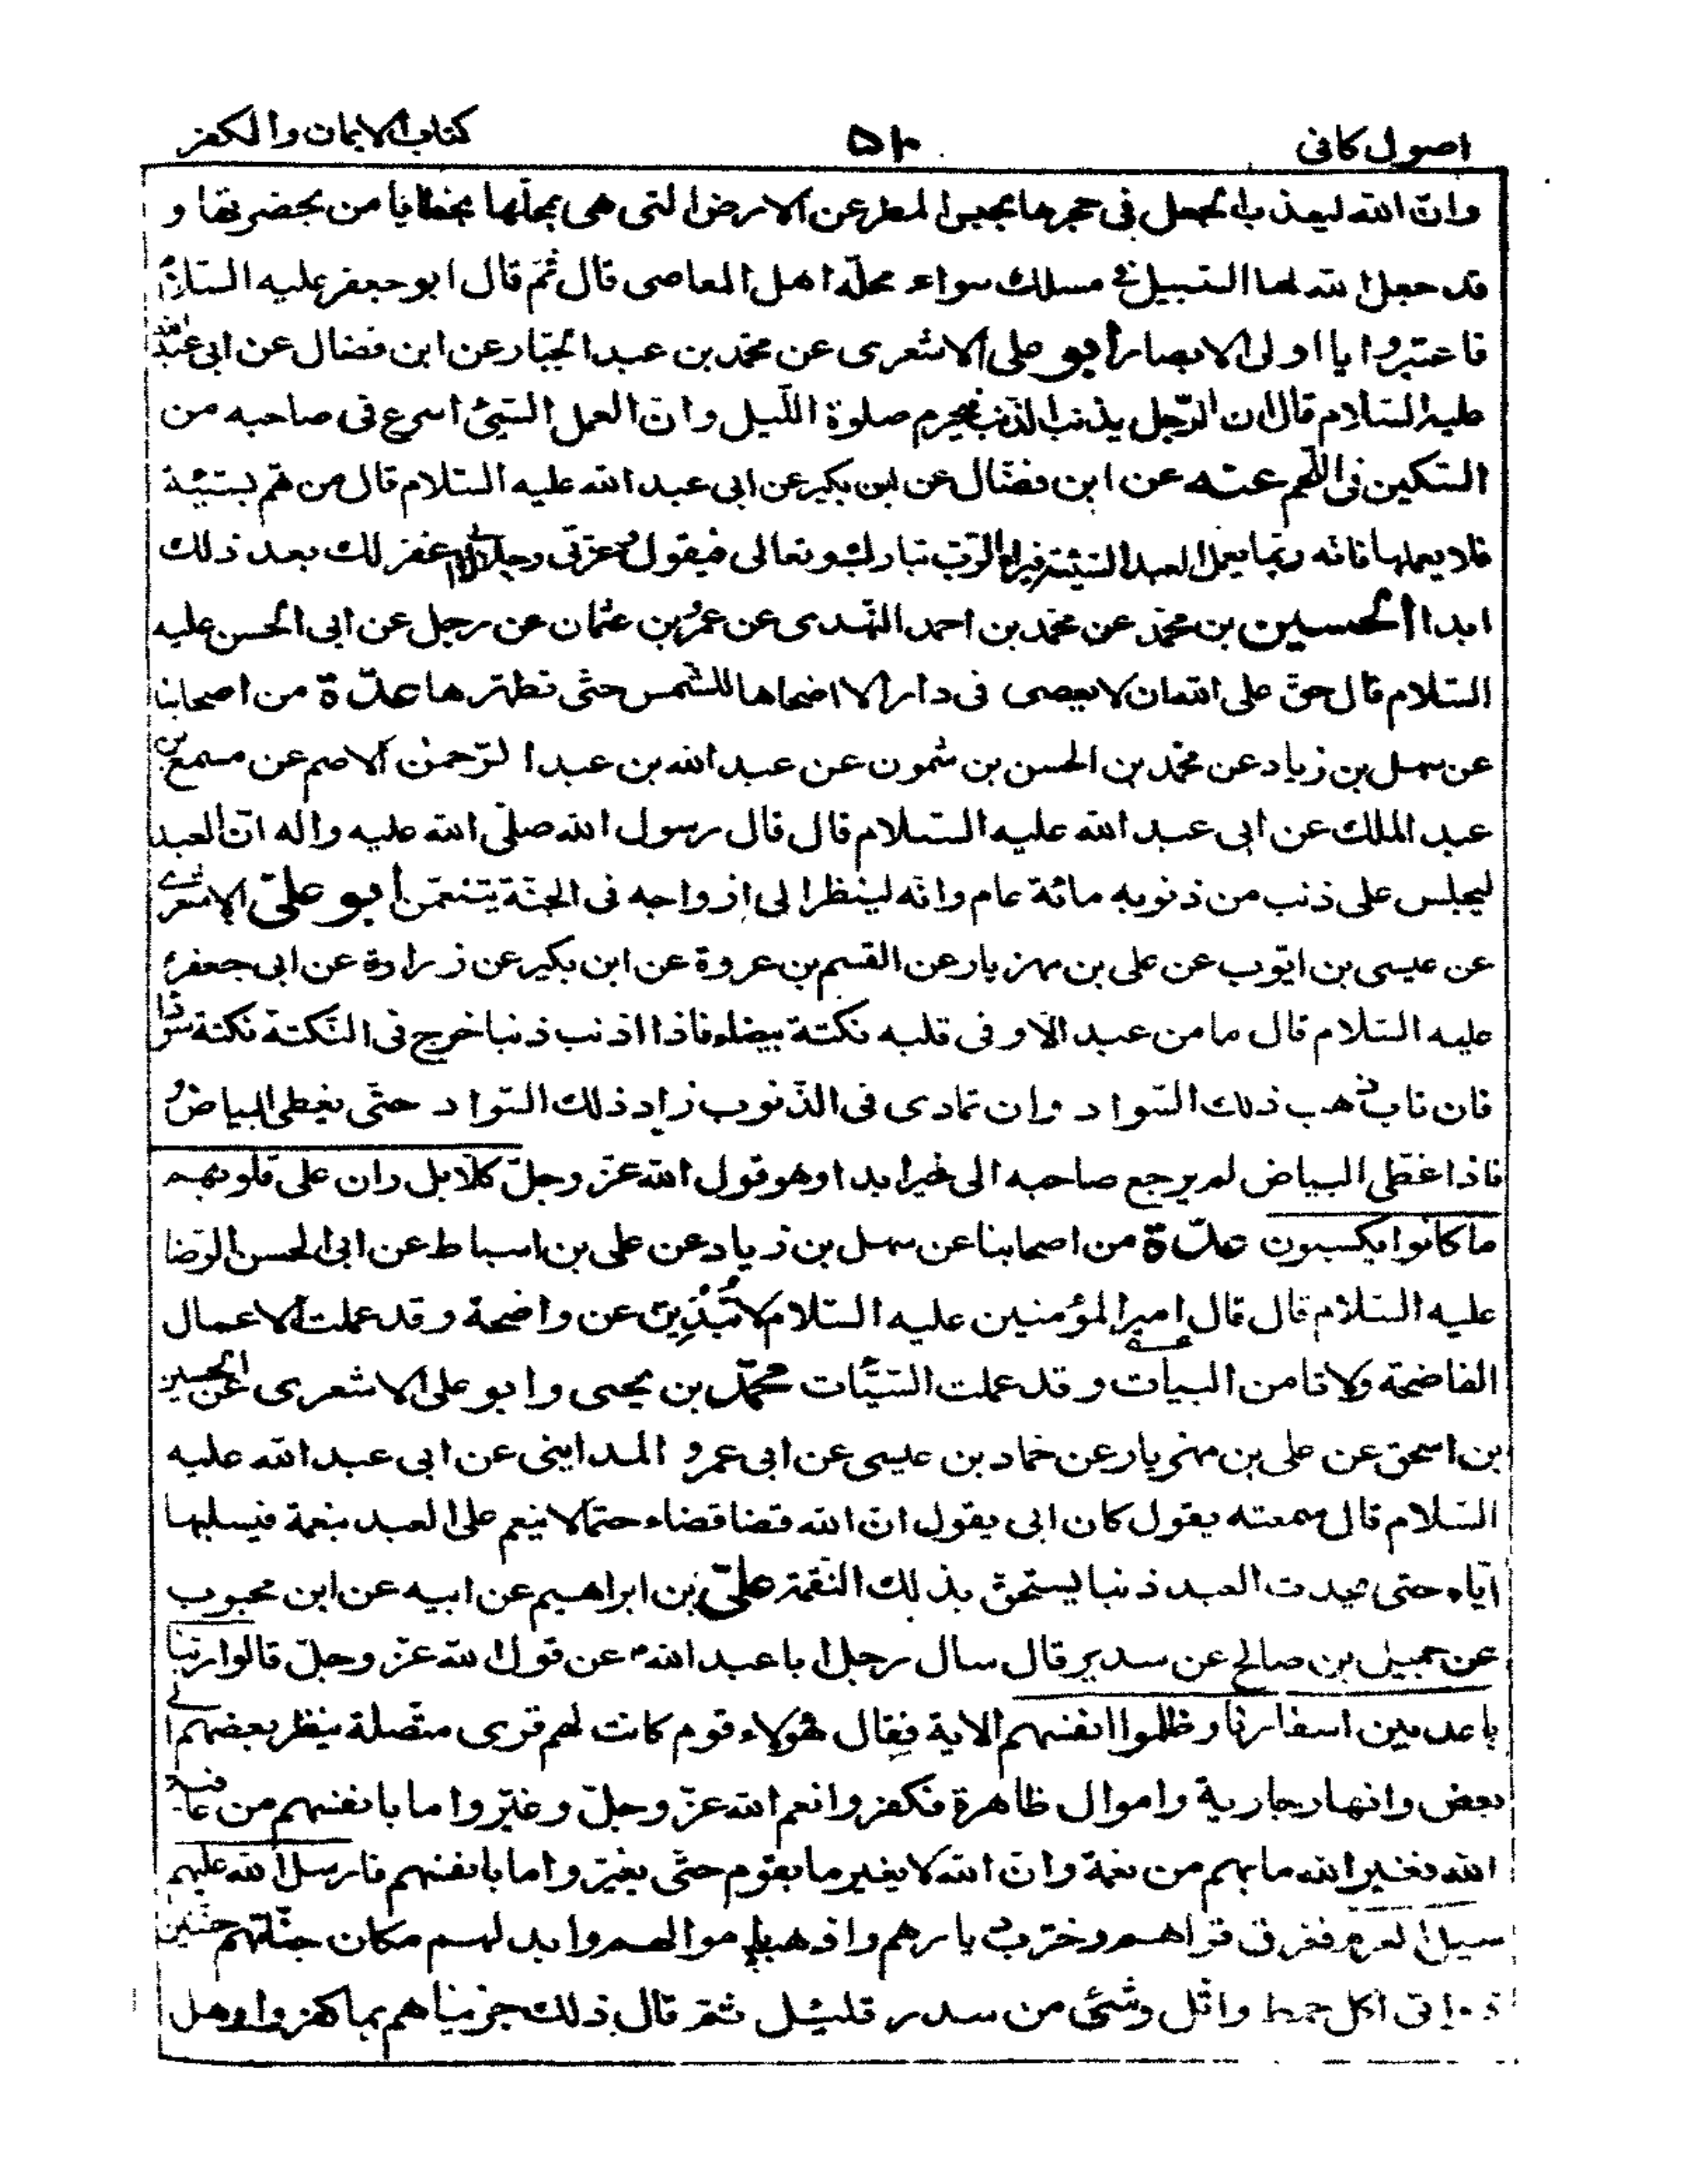 اصول کافی
۵۱۰
کتاب الایمان والکفر
وانّ الله ليعذب الجعل فی جحرها بحبس المطر عن الارض التی هی بمحلّها بخطايا من بحضرتها و
قد جعل الله لها السّبيل فے مسلك سواء محلّة اهل المعاصی قال ثمّ قال ابو جعفر عليه السّلام
فاعتبروا يا اولی الابصار أبو علی الاشعری عن محمّد بن عبد الجبّار عن ابن فضال عن ابی عبد الله
عليه السّلام قال ان الرّجل يذنب الذّنب فيحرم صلوة اللّيل وانّ العمل السّيئ اسرع فی صاحبه من
السّكين فی اللّحم عنه عن ابن فضّال عن ابن بكير عن ابی عبد الله عليه السّلام قال من همّ بسيّئة
فلا يعملها فانه ربّما يعمل العبد السّيّئة فيراه الرّبّ تبارك وتعالى فيقول وعزّتی وجلالی لا اغفر لك بعد ذلك
ابدا الحسين بن محمّد عن محمّد بن احمد النّهدی عن عمرو بن عثمان عن رجل عن ابی الحسن عليه
السّلام قال حقّ علی الله ان لا يعصى فی دار الا اضحاها للشّمس حتّی تطهّرها عدّة من اصحابنا
عن سهل بن زياد عن محمّد بن الحسن بن شمون عن عبد الله بن عبد الرّحمن الاصم عن مسمع بن
عبد الملك عن ابی عبد الله عليه السّلام قال قال رسول الله صلّى الله عليه واله انّ العبد
ليحبس علی ذنب من ذنوبه مائة عام وانّه لينظر الى ازواجه فی الجنّة يتنعّمن أبو علیّ الاشعرے
عن عيسى بن ايّوب عن علی بن مهزيار عن القسم بن عروة عن ابن بكير عن زرارة عن ابی جعفر
عليه السّلام قال ما من عبد الّا وفی قلبه نكتة بيضاء فاذا اذنب ذنبا خرج فی النّكتة نكتة سودا
فان تاب ذهب ذلك السّواد وان تمادى فی الذّنوب زاد ذلك السّواد حتّى يغطی البياض و
فاذا غطّى البياض لم يرجع صاحبه الى خير ابدا وهو قول الله عزّ وجلّ كلّا بل ران على قلوبهم
ما كانوا يكسبون عدّة من اصحابنا عن سهل بن زياد عن علی بن اسباط عن ابی الحسن الرّضا
عليه السّلام قال قال امير المؤمنين عليه السّلام لا تُبْدِيَنّ عن واضحة وقد عملت الاعمال
الفاضحة ولا تامن البيات وقد عملت السّيّئات محمّد بن يحيى وابو علی الاشعری عن الحسين
بن اسحق عن علی بن مهزيار عن حماد بن عيسى عن ابی عمرو المداينی عن ابی عبد الله عليه
السّلام قال سمعته يقول كان ابی يقول انّ الله قضا قضاء حتما لا ينعم على العبد بنعمة فيسلبها
ايّاه حتى يحدث العبد ذنبا يستحقّ بذلك النّقمة علیّ بن ابراهيم عن ابيه عن ابن محبوب
عن جميل بن صالح عن سدير قال سال رجل ابا عبد الله ع عن قول الله عزّ وجلّ قالوا ربّنا
باعد بين اسفارنا وظلموا انفسهم الاية فقال هؤلاء قوم كانت لهم قرى متّصلة ينظر بعضهم الے
بعض وانهار جارية واموال ظاهرة فكفروا نعم الله عزّ وجلّ وغيّروا ما بانفسهم من عافية
الله فغير الله ما بهم من نعمة وانّ الله لا يغير ما بقوم حتّى يغيّروا ما بانفسهم فارسل الله عليهم
سيل العرم ففرق قراهم وخرّب ديارهم واذهب باموالهم وابدلهم مكان جنّتهم جنّتين
ذواتی اكل خمط واثل وشیئ من سدر قليل ثمّ قال ذلك جزيناهم بما كفروا وهل